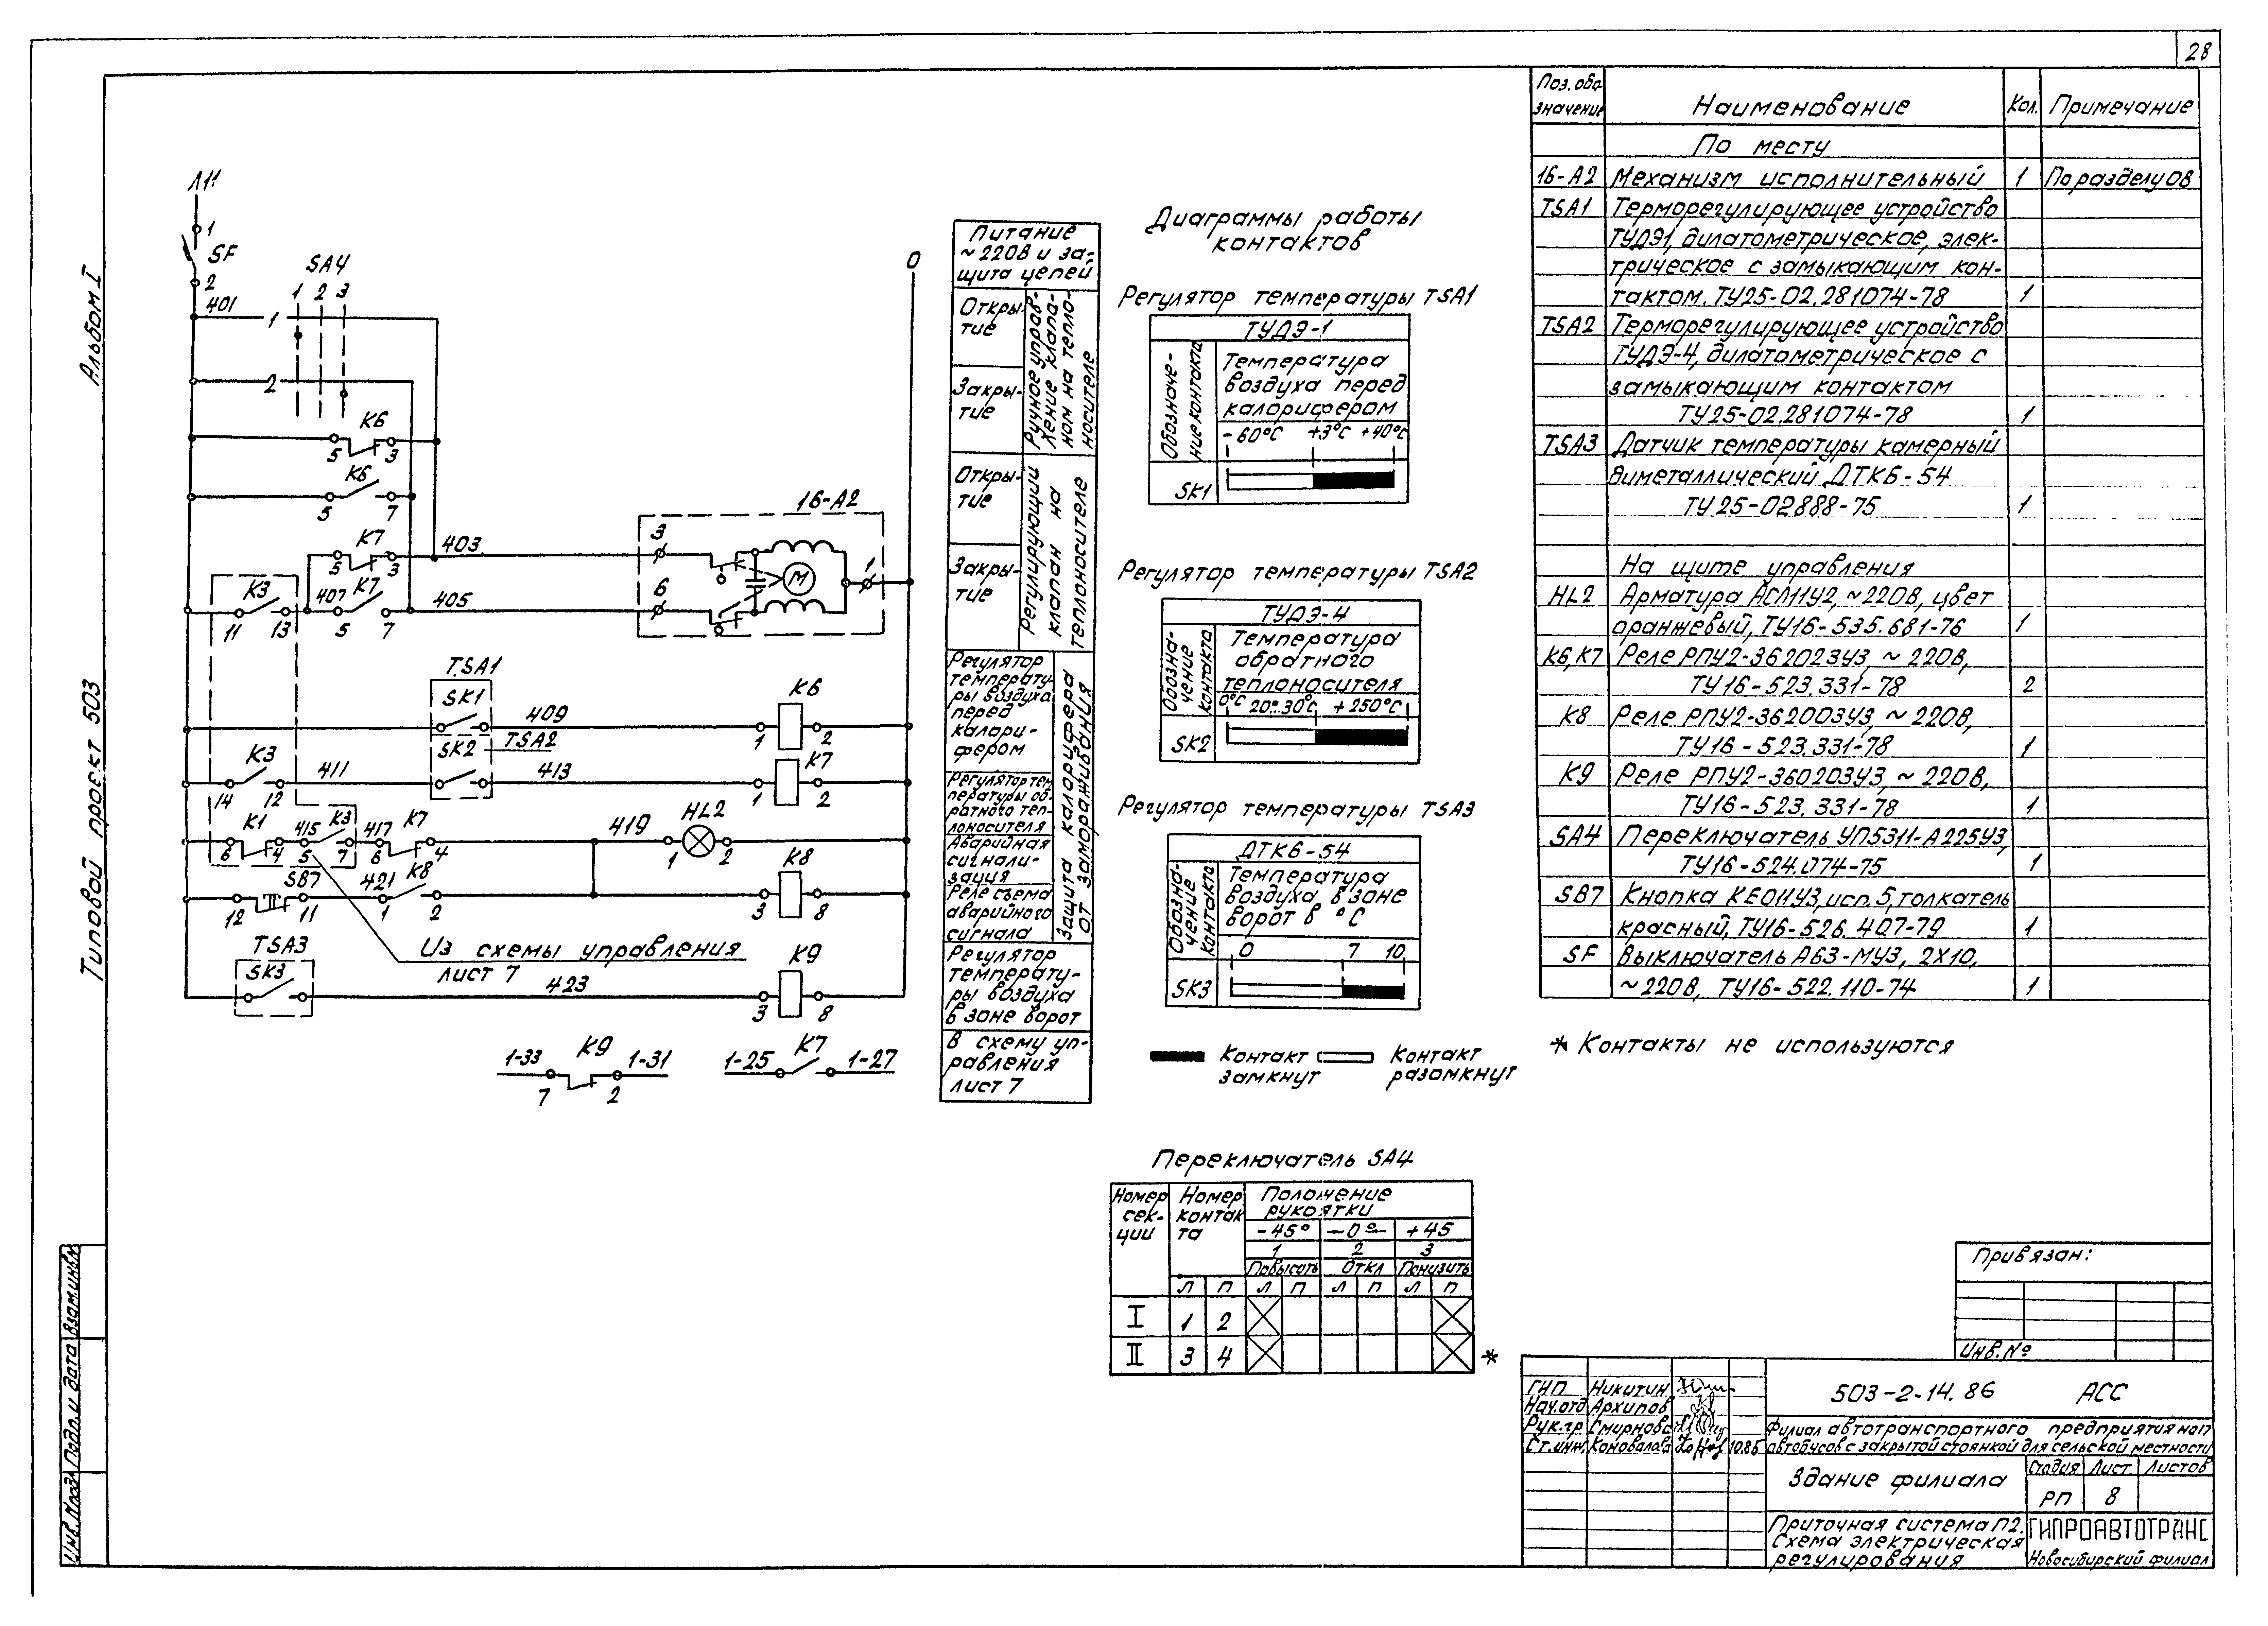 28
Альбом I
Типовой проект 503
Л11
1
SF
2
401
SA4
1 2 3
1
2
К6
5 3
К6
5 7
К7
5 3
403
К3
11 13
407
К7
5 7
405
16-А2
3
6
М
1
0
TSA1
SK1
409
К6
1 2
SK2
TSA2
К3
14 12
411
413
К7
1 2
К1
6 4
415
К3
5 7
417
К7
6 4
419
HL2
1 2
SB7
12 11
421
К8
1 2
К8
3 8
TSA3
SK3
Из схемы управления
лист 7
423
К9
3 8
1-33 К9 1-31
7 2
1-25 К7 1-27
Питание
~220В и за-
щита цепей
Откры-
тие
Закры-
тие
Ручное управ-
ление клапа-
ном на тепло-
носителе
Откры-
тие
Закры-
тие
Регулирующий
клапан на
теплоносителе
Регулятор
температу-
ры воздуха
перед
калори-
фером
Регулятор тем
пературы об-
ратного теп-
лоносителя
Аварийная
сигнали-
зация
Реле съема
аварийного
сигнала
Защита калорифера
от замораживания
Регулятор
температу-
ры воздуха
в зоне ворот
В схему уп-
равления
лист 7
Диаграммы работы
контактов
Регулятор температуры TSA1
ТУДЭ-1
Обозначе-
ние контакта
Температура
воздуха перед
калорифером
-60°С +3°С +40°С
SK1
Регулятор температуры TSA2
ТУДЭ-4
Обозна-
чение
контакта
Температура
обратного
теплоносителя
0°С 20°..30°С +250°С
SK2
Регулятор температуры TSA3
ДТКБ-54
Обозна-
чение
контакта
Температура
воздуха в зоне
ворот в °С
0 7 10
SK3
Контакт
замкнут
Контакт
разомкнут
Переключатель SA4
Номер
сек-
ции
Номер
контак
та
Положение
рукоятки
-45° 0° +45
1 2 3
Повысить Откл Понизить
Л П Л П Л П Л П
I 1 2
II 3 4 *
Поз. обо
значение Наименование Кол. Примечание
По месту
16-А2 Механизм исполнительный 1 По разделу ОВ
TSA1 Терморегулирующее устройство
ТУДЭ1, дилатометрическое, элек-
трическое с замыкающим кон-
тактом. ТУ25-02.281074-78 1
TSA2 Терморегулирующее устройство
ТУДЭ-4, дилатометрическое с
замыкающим контактом
ТУ25-02.281074-78 1
TSA3 Датчик температуры камерный
биметаллический ДТКБ-54
ТУ25-02888-75 1
На щите управления
HL2 Арматура АСЛ11У2, ~220В, цвет
оранжевый, ТУ16-535.681-76 1
К6, К7 Реле РПУ2-362023У3, ~ 220В,
ТУ16-523.331-78 2
К8 Реле РПУ2-362003У3, ~ 220В,
ТУ16-523.331-78 1
К9 Реле РПУ2-360203У3, ~ 220В,
ТУ16-523.331-78 1
SA4 Переключатель УП5311-А225У3,
ТУ16-524.074-75 1
SB7 Кнопка КЕ011У3, исп. 5, толкатель
красный, ТУ16-526.407-79 1
SF Выключатель А63-МУ3, 2х10,
~220В, ТУ16-522.110-74 1
* Контакты не используются
Привязан:
Инв. №
ГИП Никитин
Нач. отд Архипов
Рук. гр Смирнова
Ст. инж. Коновалова 10.86
503-2-14.86 АСС
Филиал автотранспортного предприятия на
автобусов с закрытой стоянкой для сельской местности
Здание филиала
Стадия Лист Листов
РП 8
Приточная система П2.
Схема электрическая
регулирования
ГИПРОАВТОТРАНС
Новосибирский филиал
Взам. инв. №
Подп. и дата
Инв. № подл.